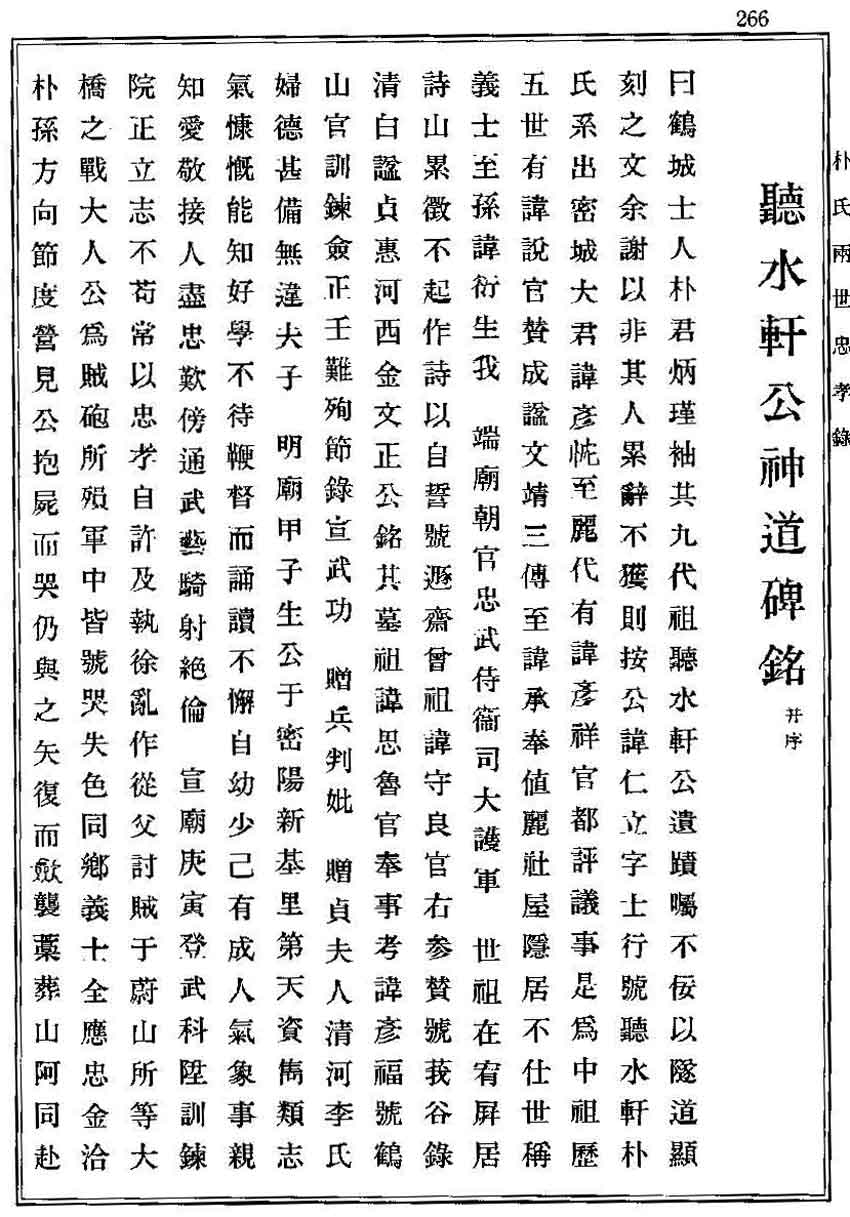 266
朴氏兩世忠孝錄
聽水軒公神道碑銘 幷序
曰鶴城士人朴君炳瑾袖其九代祖聽水軒公遺蹟囑不佞以隧道顯
刻之文余謝以非其人累辭不獲則按公諱仁立字士行號聽水軒朴
氏系出密城大君諱彥忱至麗代有諱彥祥官都評議事是爲中祖歷
五世有諱說官贊成諡文靖三傳至諱承奉値麗社屋隱居不仕世稱
義士至孫諱衍生我 端廟朝官忠武侍衞司大護軍 世祖在宥屛居
詩山累徵不起作詩以自誓號遯齋曾祖諱守良官右參贊號莪谷錄
清白諡貞惠河西金文正公銘其墓祖諱思魯官奉事考諱彥福號鶴
山官訓鍊僉正壬難殉節錄宣武功 贈兵判妣 贈貞夫人清河李氏
婦德甚備無違夫子 明廟甲子生公于密陽新基里第天資雋類志
氣慷慨能知好學不待鞭督而誦讀不懈自幼少己有成人氣象事親
知愛敬接人盡忠歎傍通武藝騎射絶倫 宣廟庚寅登武科陞訓鍊
院正立志不苟常以忠孝自許及執徐亂作從父討賊于蔚山所等大
橋之戰大人公爲賊砲所殞軍中皆號哭失色同鄕義士全應忠金洽
朴孫方向節度營見公抱屍而哭仍與之矢復而歛襲藁葬山阿同赴